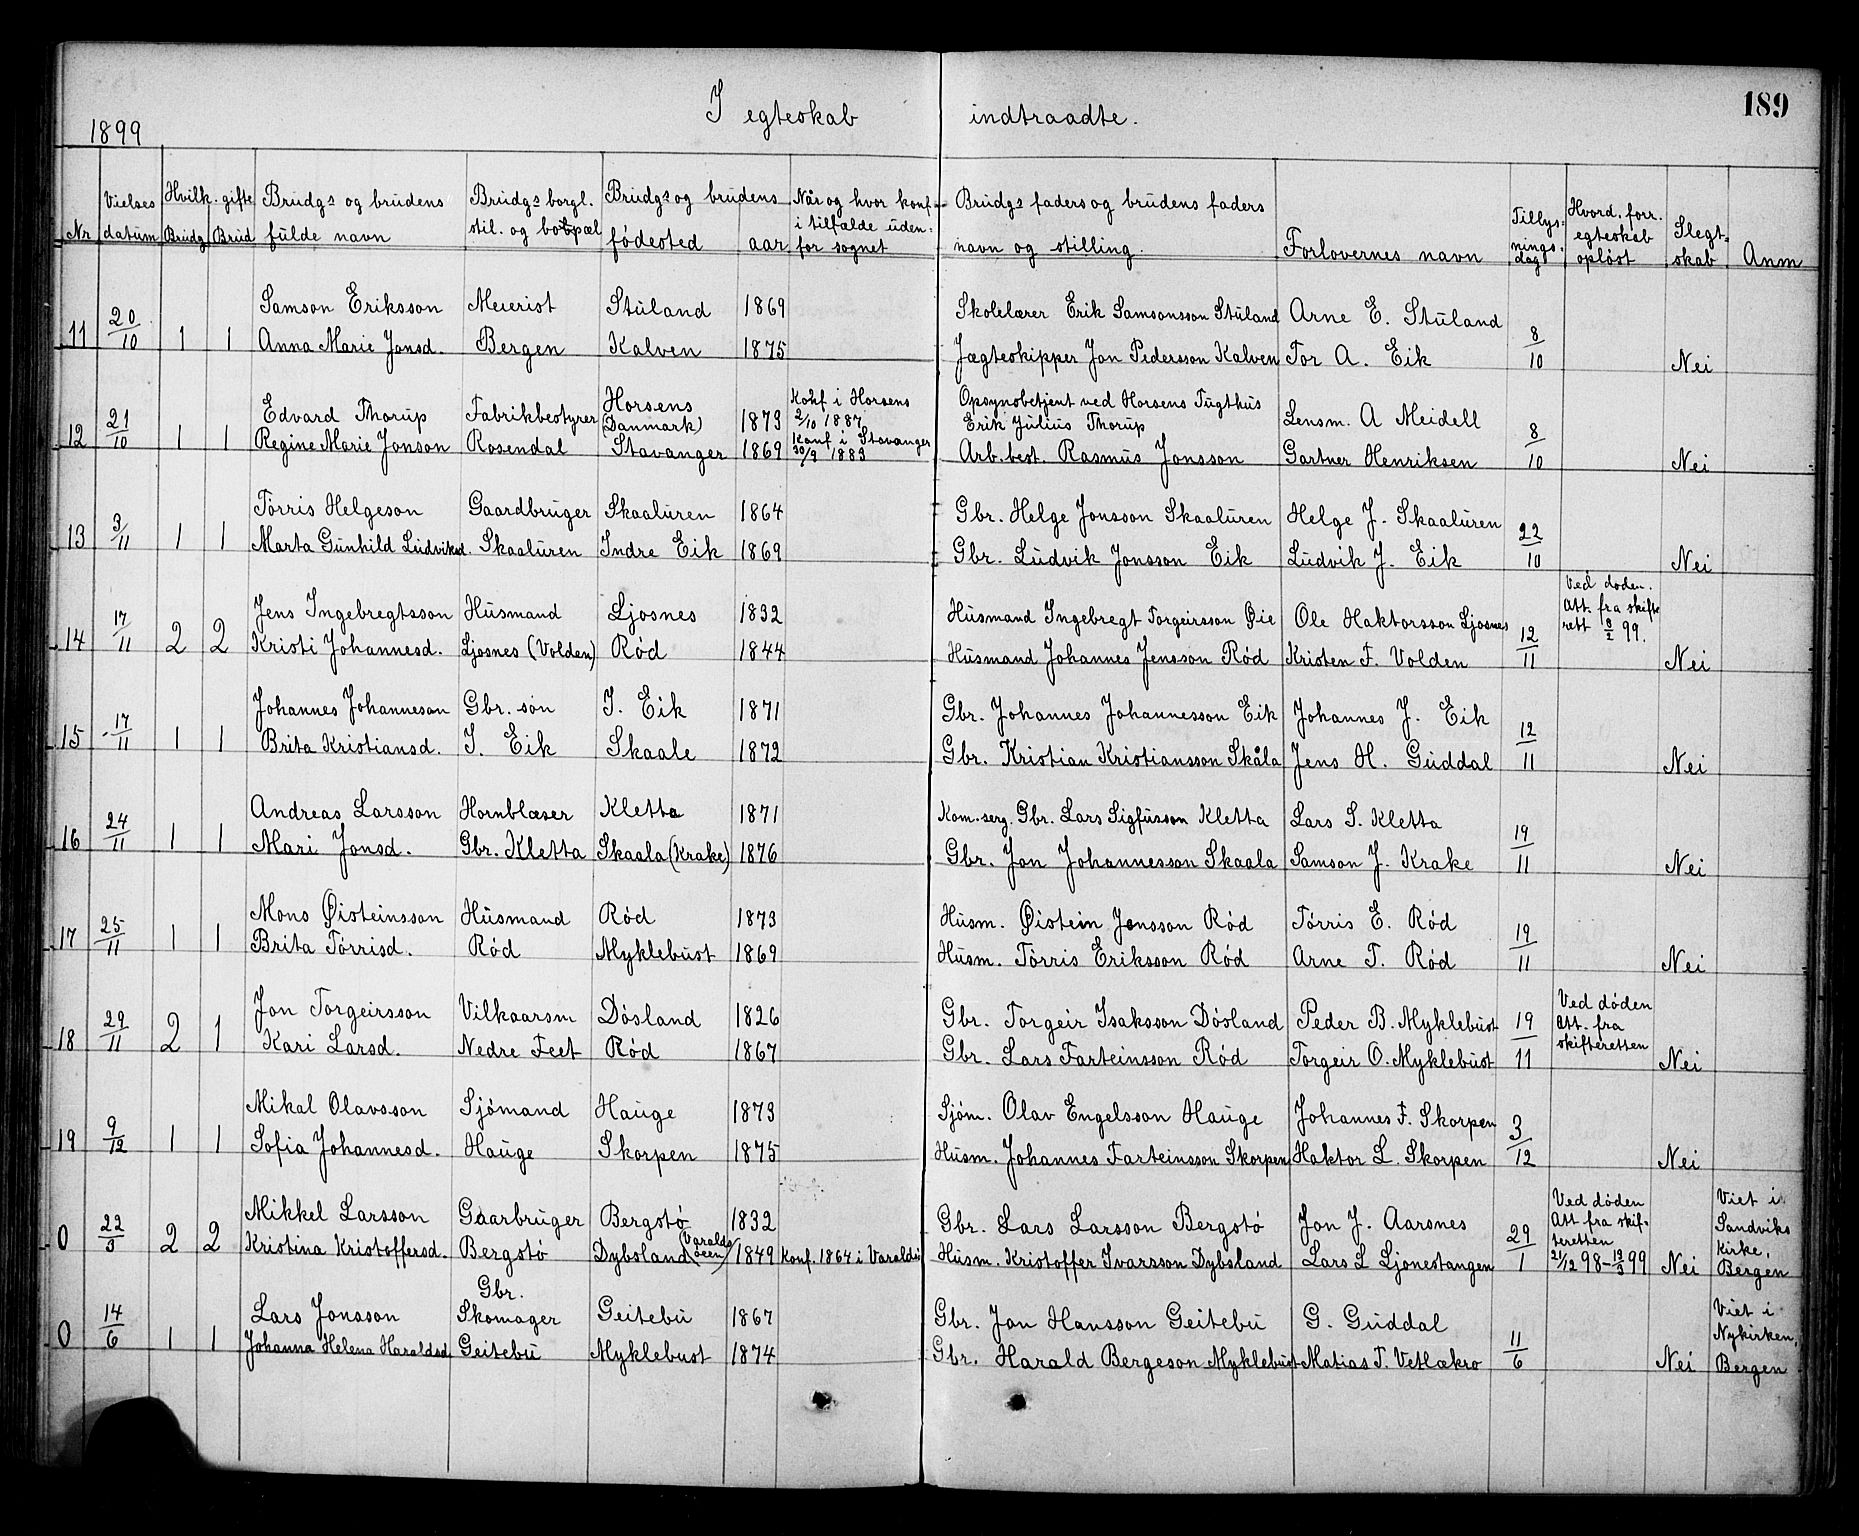 1899 I egteskab indtraadte. 189
Nr | Vielses datum | Hvilk. gifte Brudg. Brud | Brudgs og brudens fulde navn | Brudgs borgl. stil. og bopæl | Brudgs og brudens fødested aar | Når og hvor konf. i tilfælde uden for sognet | Brudgs faders og brudens faders navn og stilling. | Forlovernes navn | Tillysnings. dag | Hvord. forr. egteskab opløst | Slegtskab | Anm
11 20/10 1 1 Samson Eriksson Meierist Stuland 1869 Skolelærer Erik Samsonsson Stuland Arne E. Stuland 8/10
Anna Marie Jonsd. Bergen Kalven 1875 Jægteskipper Jon Pedersson Kalven Tor A. Eik Nei
12 21/10 1 1 Edvard Thorup Fabrikbestyrer Horsens (Danmark) 1873 Konf i Horsens 2/10 1887 Opsynsbetjent ved Horsens Tugthus Erik Julius Thorup Lensm. A Meidell 8/10
Regine Marie Jonson Rosendal Stavanger 1869 Konf. i Stavanger 30/9 1883 Arb.best. Rasmus Jonsson Gartner Henriksen Nei
13 3/11 1 1 Tørris Helgeson Gaardbruger Skaaluren 1864 Gbr. Helge Jonsson Skaaluren Helge J. Skaaluren 22/10
Marta Gunhild Ludviksd. Skaaluren Indre Eik 1869 Gbr. Ludvik Jonsson Eik Ludvik J. Eik Nei
14 17/11 2 2 Jens Ingebregtsson Husmand Ljosnes 1832 Husmand Ingebregt Torgeirsson Øie Ole Haktorsson Ljosnes 12/11 Ved døden. Att. fra skifte rett 8/2 99.
Kristi Johannesd. Ljosnes (Volden) Rød 1844 Husmand Johannes Jensson Rød Kristen F. Volden Nei
15 17/11 1 1 Johannes Johanneson Gbr. søn I. Eik 1871 Gbr. Johannes Johannesson Eik Johannes J. Eik 12/11
Brita Kristiansd. I. Eik Skaale 1872 Gbr. Kristian Kristiansson Skåla Jens H. Guddal Nei
16 24/11 1 1 Andreas Larsson Hornblæser Kletta 1871 Kom.serg. Gbr. Lars Sigfusson Kletta Lars S. Kletta 19/11
Mari Jonsd. Gbr. Kletta Skaala (Krake) 1876 Gbr. Jon Johannesson Skaala Samson J. Krake Nei
17 25/11 1 1 Mons Øisteinsson Husmand Rød 1873 Husm. Øistein Jensson Rød Tørris E. Rød 19/11
Brita Tørrisd. Rød Myklebust 1869 Husm. Tørris Eriksson Rød Arne T. Rød Nei
18 29/11 2 1 Jon Torgeirsson Vilkaarsm Døsland 1826 Gbr. Torgeir Isaksson Døsland Peder B. Myklebust 19/11 Ved døden Att. fra skifteretten
Kari Larsd. Nedre Feet Rød 1867 Gbr. Lars Farteinsson Rød Torgeir O. Myklebust Nei
19 9/12 1 1 Mikal Olavsson Sjømand Hauge 1873 Sjøm. Olav Engelsson Hauge Johannes F. Skorpen 3/12
Sofia Johannesd. Hauge Skorpen 1875 Husm. Johannes Farteinsson Skorpen Haktor L. Skorpen Nei
0 22/3 2 2 Mikkel Larsson Gaarbruger Bergstø 1832 Gbr. Lars Larsson Bergstø Jon J. Aarsnes 29/1 Ved døden Att fra skifteretten 21/12 98 – 13/3 99 Viet i Sandviks kirke, Bergen
Kristina Kristoffersd. Bergstø Dybsland (Varaldsøen) 1849 Konf. 1864 i Varaldsø Husm. Kristoffer Ivarsson Dybsland Lars L Ljonestangen Nei
0 14/6 1 1 Lars Jonsson Gbr. Skomager Geitebu 1867 Gbr. Jon Hansson Geitebu G. Guddal 11/6 Viet i Nykirken, Bergen
Johanna Helena Haraldsd Geitebu Myklebust 1874 Gbr. Harald Bergeson Myklebust Matias T. Vetlækro Nei